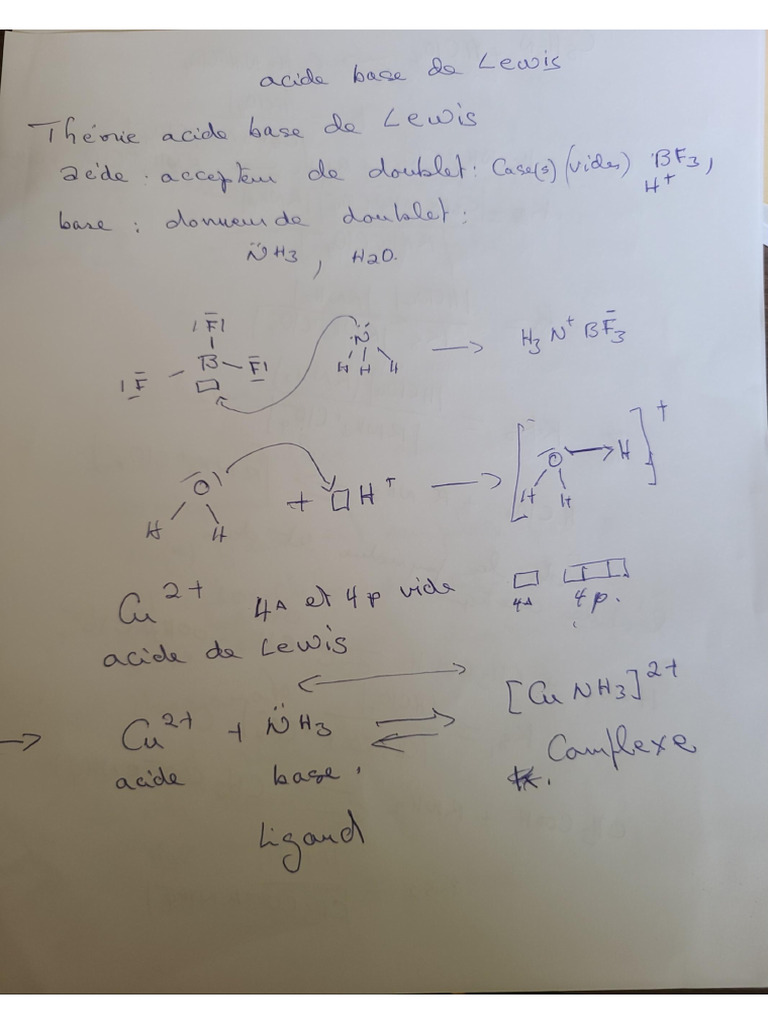 acide base de Lewis
Théorie acide base de Lewis
acide : accepteur de doublet : Case(s) (vides) BF3,
H+
base : donneur de doublet :
N̈H3, H2O.
|F̅|
|F̅ — B — F̅| N̈ → H3N+ BF̅3
H H H
O̅ + □ H+ → [O̅ → H]+
H H H H
Cu2+ 4s et 4p vide 4s 4p.
acide de Lewis
→ Cu2+ + N̈H3 ⇌ [Cu NH3]2+
acide base. Complexe
Ligand